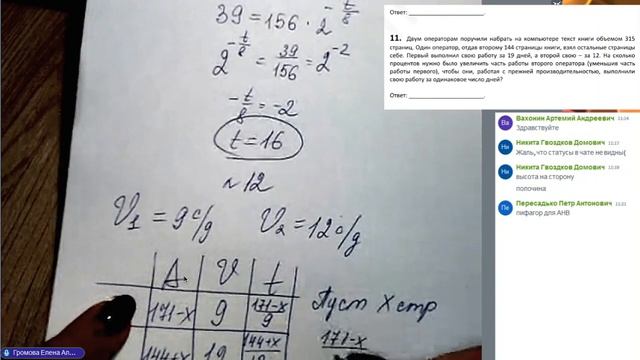 39 = 156 · 2^(-t/8)
2^(-t/8) = 39/156 = 2^(-2)
-t/8 = -2
t = 16
№12
V₁ = 9 с/д V₂ = 12 с/д
A V t
171-x 9 171-x/9
144+x 12 144+x
Пуст x стр
171-x
Ответ:
11. Двум операторам поручили набрать на компьютере текст книги объемом 315
страниц. Один оператор, отдав второму 144 страницы книги, взял остальные страницы
себе. Первый выполнил свою работу за 19 дней, а второй свою – за 12. На сколько
процентов нужно было увеличить часть работы второго оператора (уменьшив часть
работы первого), чтобы они, работая с прежней производительностью, выполнили
свою работу за одинаковое число дней?
Ответ:
Ва Вахонин Артемий Андреевич
Здравствуйте
Ни Никита Гвоздков Домович
Жаль,что статусы в чате не видны(
Ни Никита Гвоздков Домович
высота на сторону
попочина
Пе Пересадько Петр Антонович
пифагор для АНВ
Громова Елена Ал...